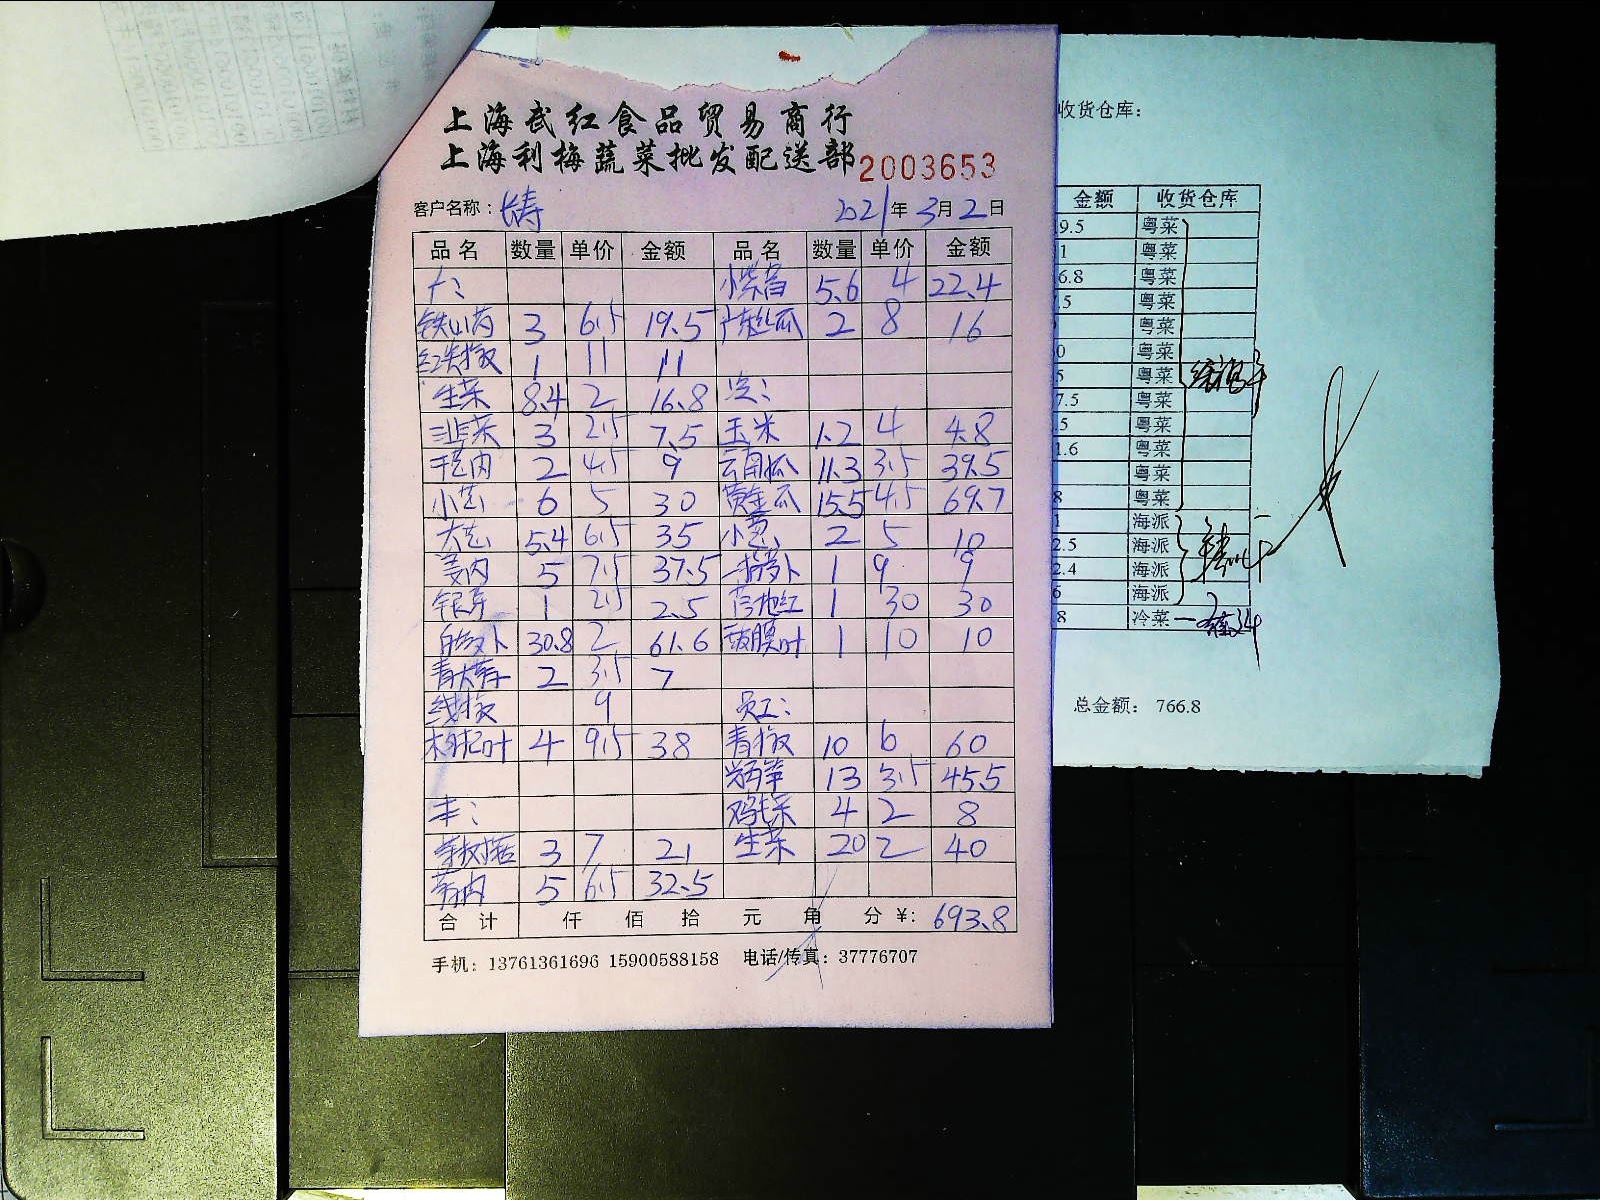 上海武红食品贸易商行
上海利梅蔬菜批发配送部
2003653
客户名称：长寿 2021年3月2日
品名 数量 单价 金额 品名 数量 单价 金额
5.6 4 22.4
铁山药 3 6.5 19.5 广东丝瓜 2 8 16
红尖椒 1 11 11
生菜 8.4 2 16.8
韭菜 3 2.5 7.5 玉米 1.2 4 4.8
2 4.5 9 11.3 3.5 39.5
小芒 6 5 30 黄金瓜 15.5 4.5 69.7
大芒 5.4 6.5 35 小葱 2 5 10
姜肉 5 7.5 37.5 1 9 9
银芽 1 2.5 2.5 1 30 30
白萝卜 30.8 2 61.6 1 10 10
青大蒜 2 3.5 7
线椒 9 员工：
枸杞叶 4 9.5 38 青椒 10 6 60
莴笋 13 3.5 45.5
鸡毛菜 4 2 8
3 7 21 生菜 20 2 40
5 6.5 32.5
合计 仟 佰 拾 元 角 分 ¥: 693.8
手机：13761361696 15900588158 电话/传真：37776707
收货仓库：
金额 收货仓库
9.5 粤菜
1 粤菜
6.8 粤菜
7.5 粤菜
粤菜
0 粤菜
5 粤菜
7.5 粤菜
.5 粤菜
1.6 粤菜
粤菜
8 粤菜
1 海派
2.5 海派
2.4 海派
6 海派
8 冷菜
总金额： 766.8